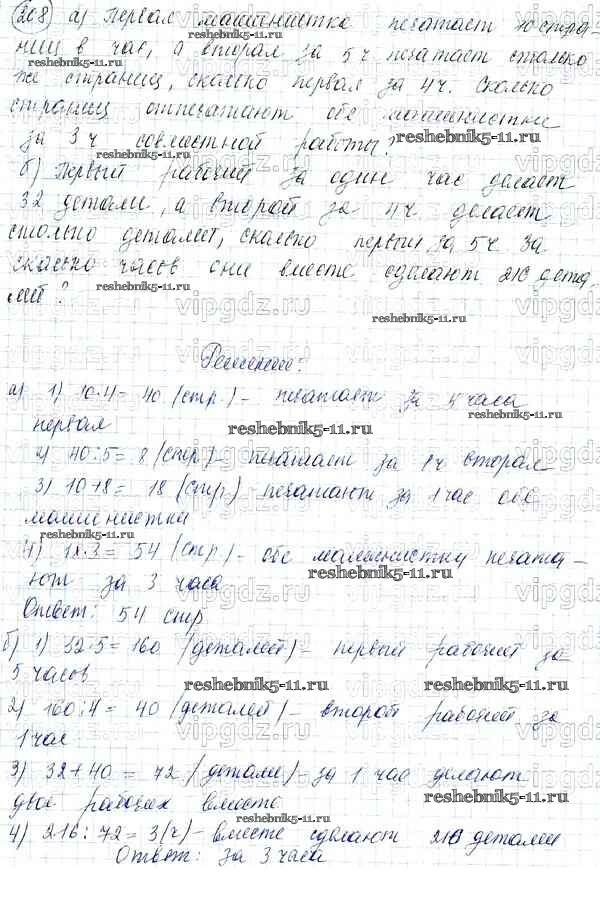 208 а) Первая машинистка печатает 10 стра-
ниц в час, а вторая за 5 ч печатает столько
же страниц, сколько первая за 4 ч. Сколько
страниц отпечатают обе машинистки
за 3 ч совместной работы?
б) Первый рабочий за один час делает
32 детали, а второй за 4 ч делает
столько деталей, сколько первый за 5 ч. За
сколько часов они вместе сделают 216 дета-
лей?
Решение:
а) 1) 10·4 = 40 (стр.) - печатает за 4 часа
первая
2) 40:5 = 8 (стр) - печатает за 1ч вторая
3) 10+8 = 18 (стр) - печатают за 1 час обе
машинистки
4) 18·3 = 54 (стр) - обе машинистки печата-
ют за 3 часа
Ответ: 54 стр
б) 1) 32·5 = 160 (деталей) - первый рабочий за
5 часов
2) 160:4 = 40 (деталей) - второй рабочий за
1 час
3) 32+40 = 72 (детали) - за 1 час делают
двое рабочих вместе
4) 216:72 = 3(ч) - вместе сделают 216 детали
Ответ: за 3 часа
reshebnik5-11.ru
vipgdz.ru